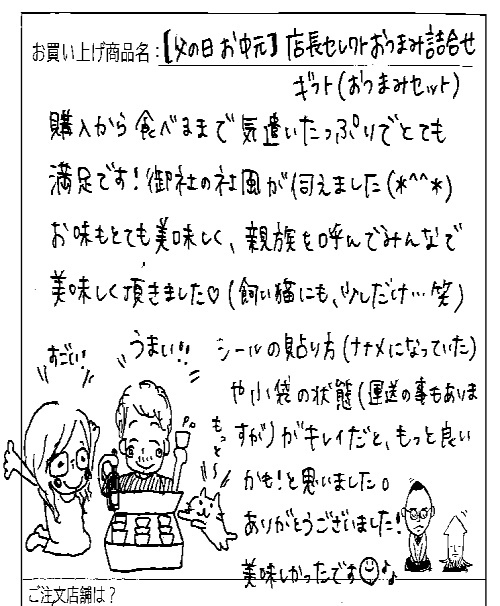 お買い上げ商品名：【父の日 お中元】店長セレクトおつまみ詰合せ
ギフト(おつまみセット)
購入から食べるまで気遣いたっぷりでとても
満足です！御社の社風が伺えました(*^^*)
お味もとても美味しく、親族を呼んでみんなで
美味しく頂きました♡(飼い猫にも、少しだけ…笑)
すごい!
うまい!!
シールの貼り方(ナナメになっていた)
や小袋の状態(運送の事もありま
すが)がキレイだと、もっと良い
もっと〜
かも！と思いました。
ありがとうございました！
美味しかったです☺♪
ご注文店舗は？